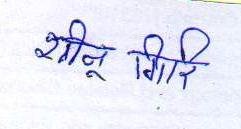 शीनू गिरि